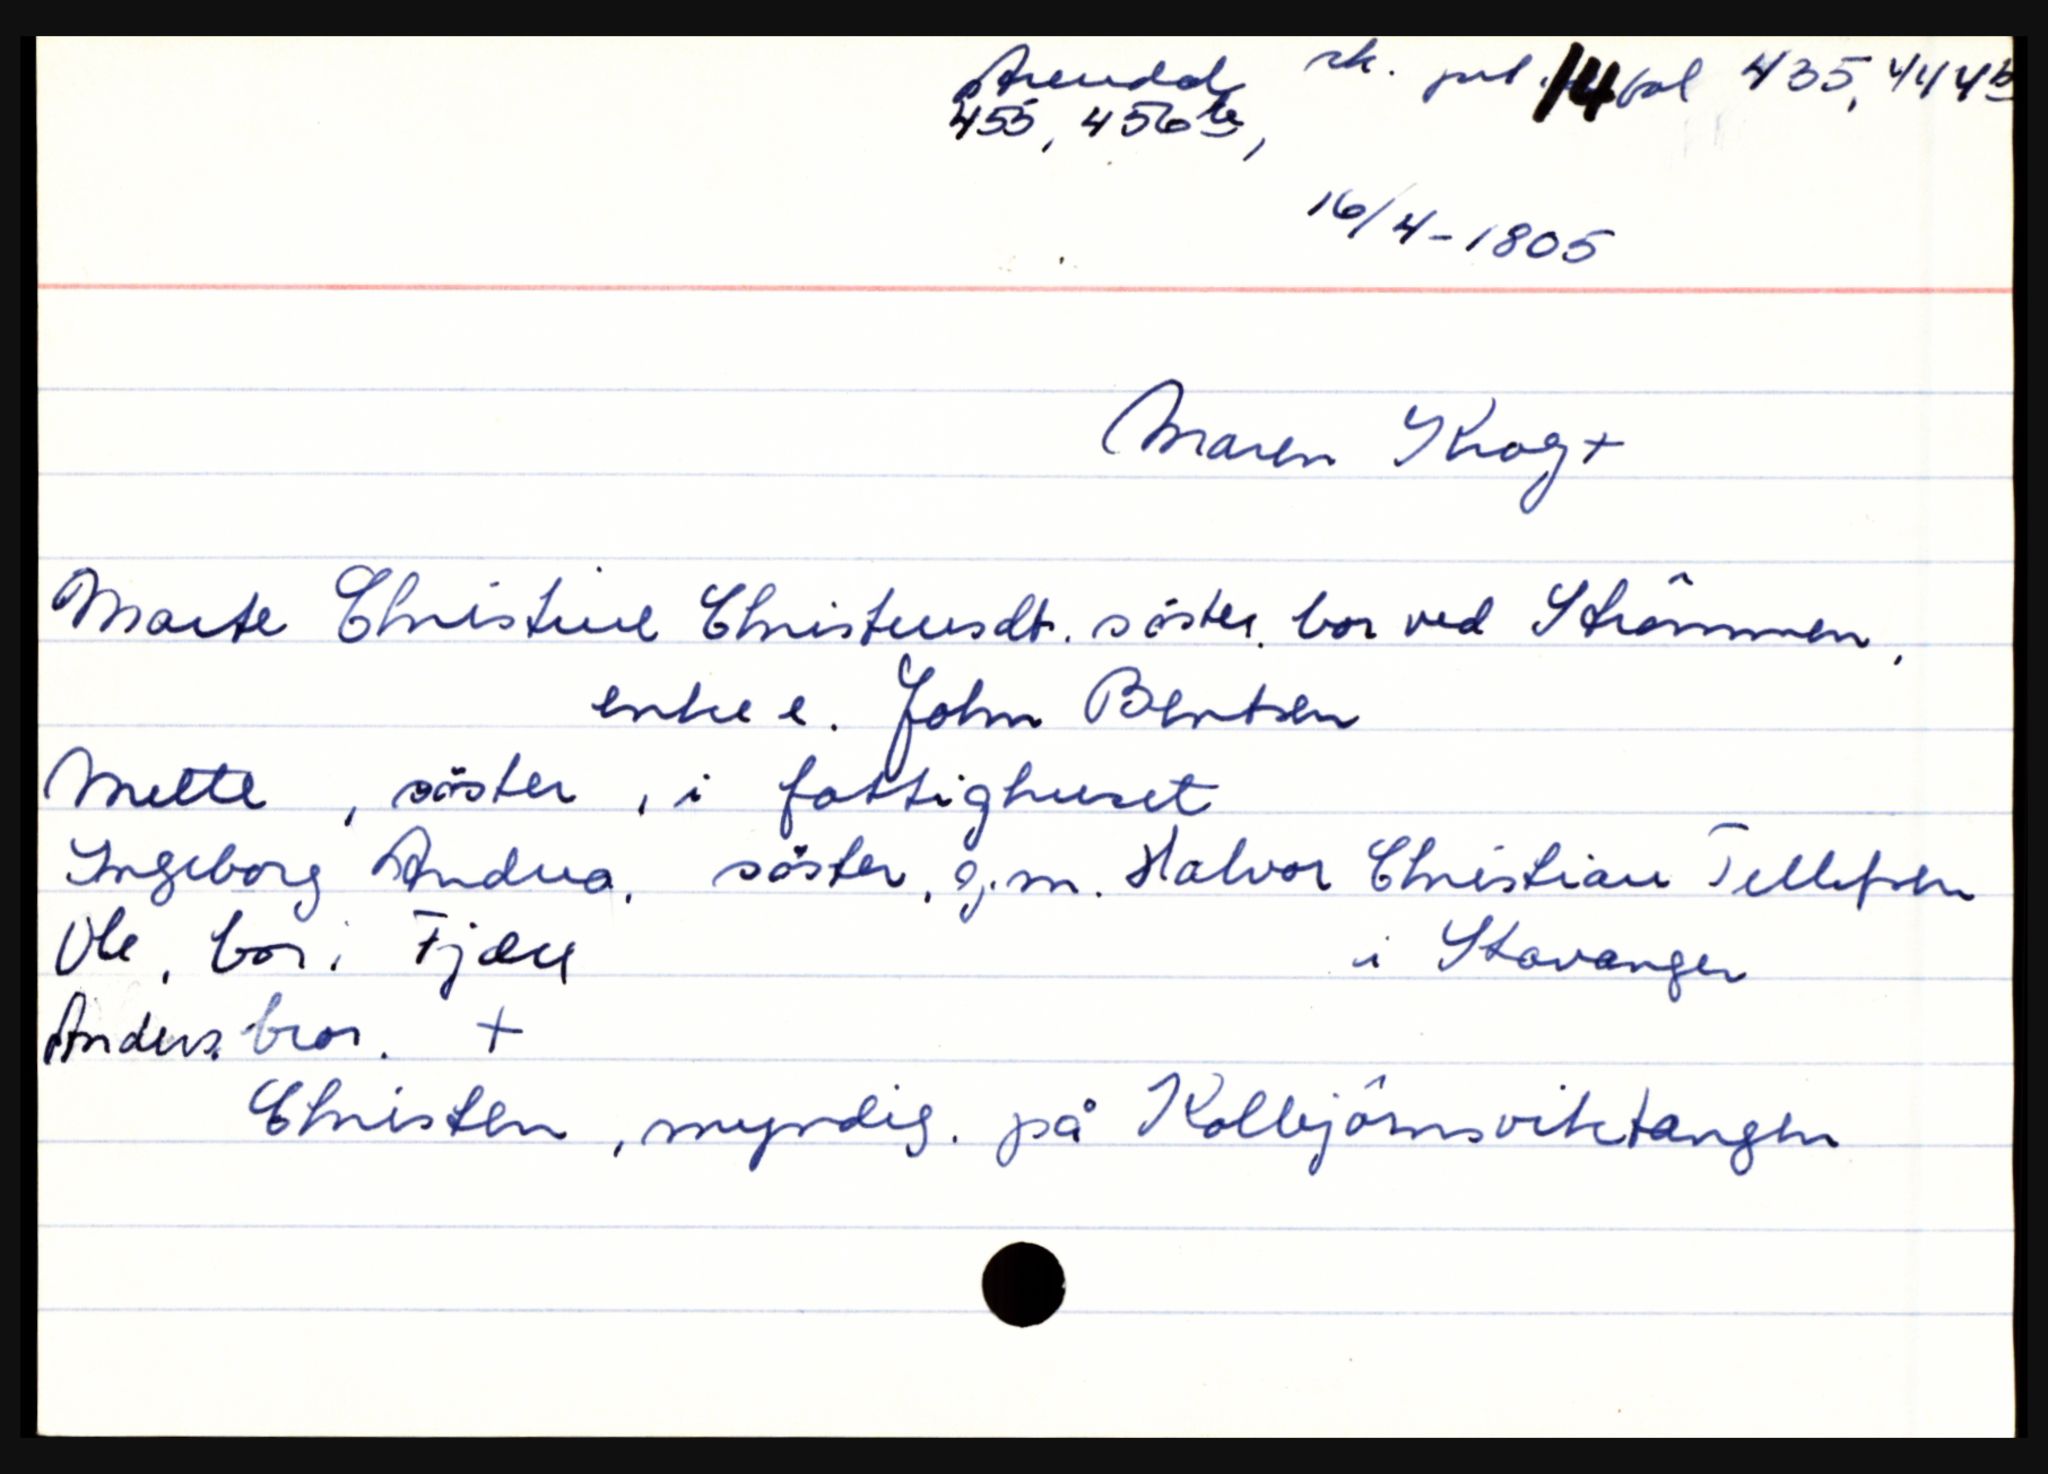 Arendal sk. prt. 14 fol 435, 444b
455, 456b,
16/4-1805
Maren Krog +
Marte Christine Christensdt. söster. bor ved Strömmen,
enke e. John Bentsen
Mette, söster, i fattighuset
Ingeborg Andrea, söster, g.m. Halvor Christian Tellefsen
Ole, bor i Fjære i Stavanger
Anders. bror. +
Christen, myndig. på Kolbjörnsviktangen